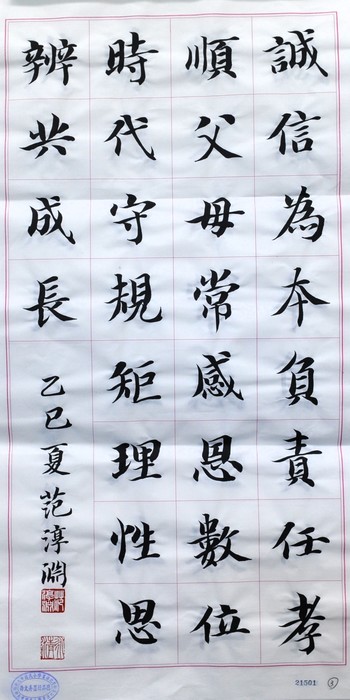 誠信為本負責任孝
順父母常感恩數位
時代守規矩理性思
辨共成長
乙巳夏 范淳淵
21501 8